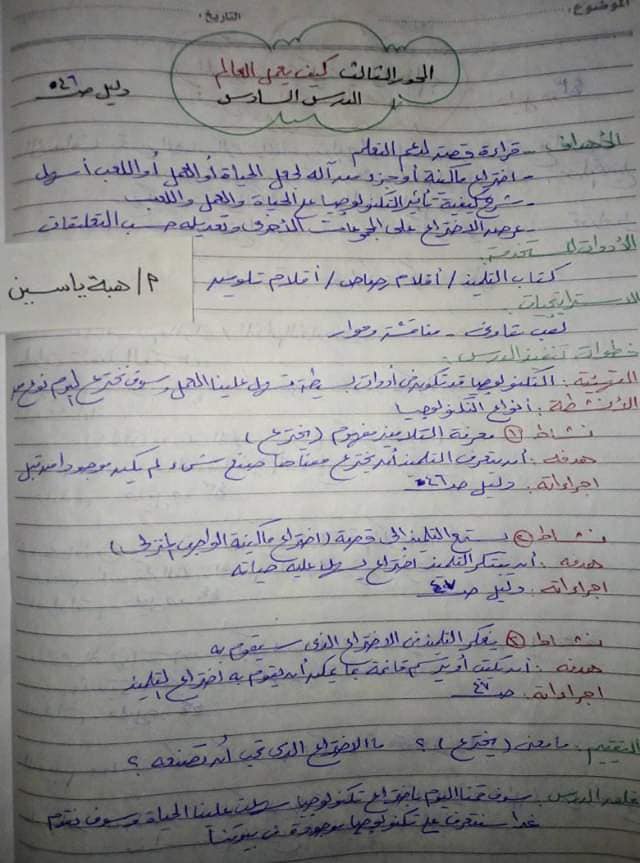 الموضوع:
التاريخ:
المحور الثالث كيف يعمل العالم
الدرس السادس
دليل ص٥٤٦
الأهداف - قراءة قصة لدعم التعلم
- اختراع ماكينة أو جزء من آلة لجعل الحياة أو العمل أو اللعب أسهل
- شرح كيفية تأثير التكنولوجيا على الحياة والعمل واللعب
- عرض الاختراع على المجموعات الأخرى وتعديله حسب التعليقات
الأدوات المستخدمة:
كتاب التلميذ / أقلام رصاص / أقلام تلوين
م/ هبة ياسين
الاستراتيجيات:
لعب تعاوني - مناقشة وحوار
خطوات تنفيذ الدرس:
التهيئة: التكنولوجيا قد تكون من أدوات بسيطة تسهل علينا العمل وسوف نخترع اليوم نوع من
الأنشطة: أنواع التكنولوجيا
نشاط ① معرفة التلاميذ مفهوم (يخترع)
هدفه: أن يتعرف التلميذ أن يخترع معناها صنع شيء لم يكن موجود من قبل
اجراءاته: دليل ص ٥٤٦
نشاط ② يستمع التلميذ إلى قصة (اختراع ماكينة الواجب المنزلي)
هدفه: أن يبتكر التلميذ اختراع يسهل عليه حياته
اجراءاته: دليل ص ٤٧
نشاط ③ يفكر التلميذ في الاختراع الذي سيقوم به
هدفه: أن يكتب أو يرسم قائمة بما يمكن أن يقوم به اختراع التلميذ
اجراءاته: ص ٤٧
التقييم: ما معنى (يخترع)؟ ما الاختراع الذي تحب أن تصنعه؟
خاتمة الدرس: سوف قمنا اليوم باختراع تكنولوجيا سهلت علينا الحياة وسوف نقوم
غدا سنتعرف على تكنولوجيا موجودة في بيوتنا